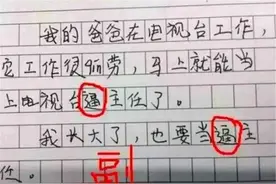 我的爸爸在电视台工作，
工作很劳，马上就能当
上电视台逼主任了。
我长大了，也要当逼主
任。
副